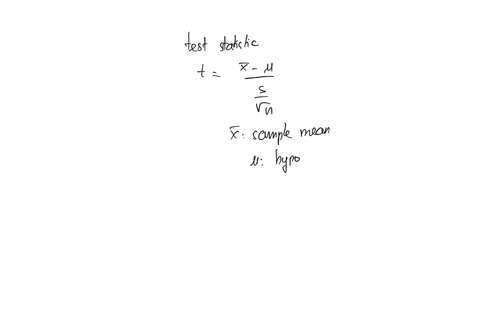 test statistic
t = x̄ - μ / s/√n
x̄: sample mean
μ: hypo